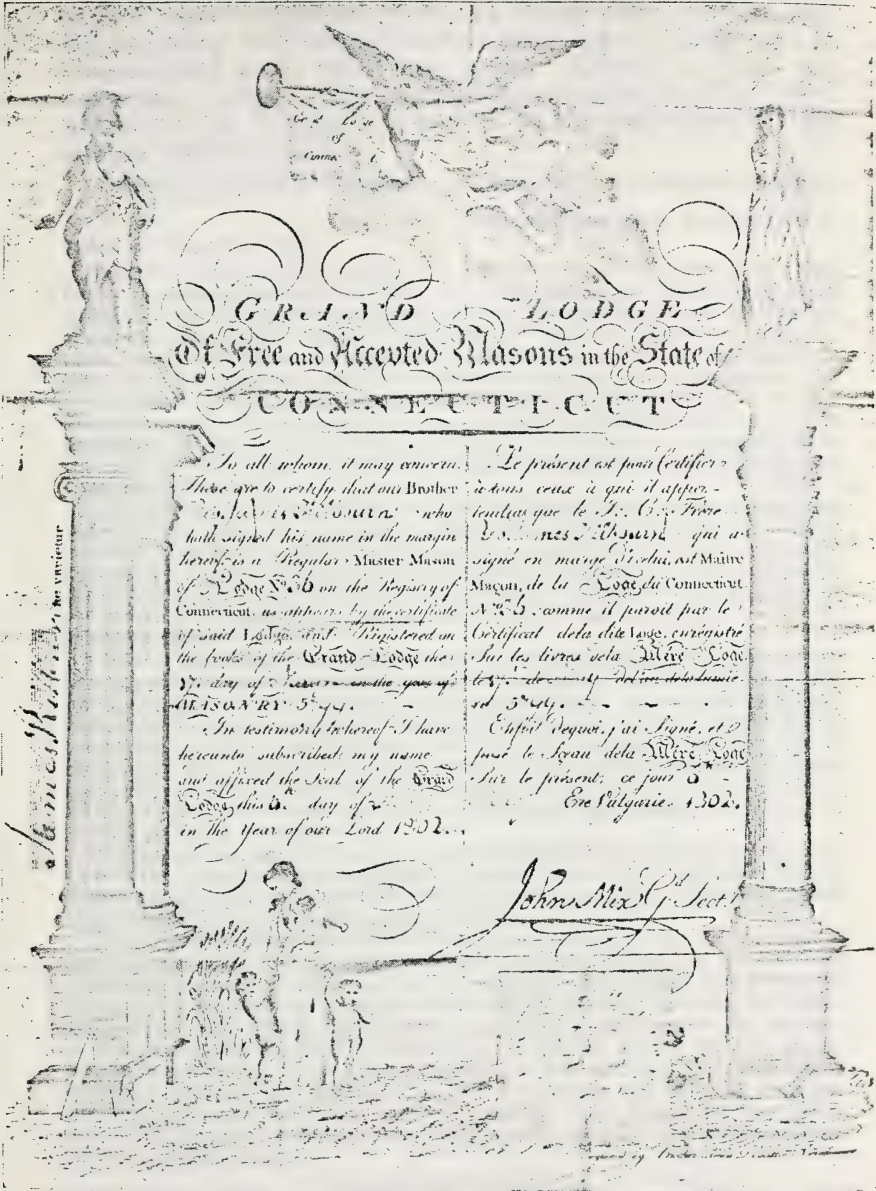 of
GRAND LODGE
Of Free and Accepted Masons in the State of
CONNECTICUT
To all whom it may concern.
These are to certify that our Brother
who
hath signed his name in the margin
hereof is a Regular Master Mason
of Lodge No. 36 on the Registry of
Connecticut, as appears by the certificate
of said Lodge, and Registered on
the books of the Grand Lodge the
17 day of in the year of
MASONRY
In testimony whereof I have
hereunto subscribed my name
and affixed the Seal of the Grand
Lodge, this day of
in the Year of our Lord 1802.
Le présent est pour Certifier
à tous ceux à qui il appar-
tiendra que le Frère
qui a
signé en marge d'icelui, est Maître
Maçon, de la Loge du Connecticut
comme il paroit par le
Certificat de la dite Loge, enregistré
Sur les livres de la Mère Loge
Enfoi dequoi, j'ai Signé, et
posé le Sceau de la Mère Loge
Sur le présent; ce jour
Ere Vulgaire. 1802.
John Mix Gd. Sect.
ne varietur